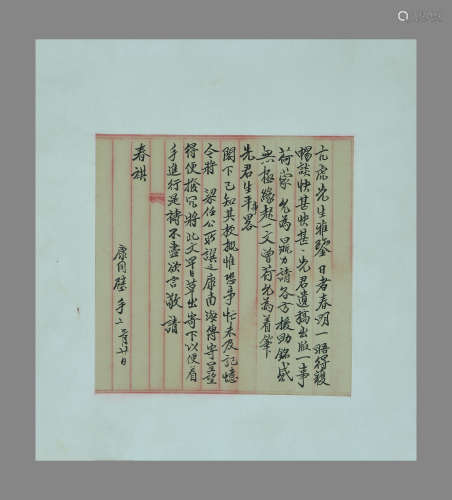 亢虎先生雅鑒日者春明一晤得親
暢談快甚快甚先君遺稿出版一事
荷蒙允為竭力請各方援助銘感
無極緣起一文曾荷允為着筆
先君生平事畧
閣下已知其梗概惟恐事忙未及記憶
令將梁任公所譔之康南海傳寄呈望
得便撥冗將此文早日草出寄下以便着
手進行是禱不盡欲言敬請
春祺
康同璧手上二月廿日